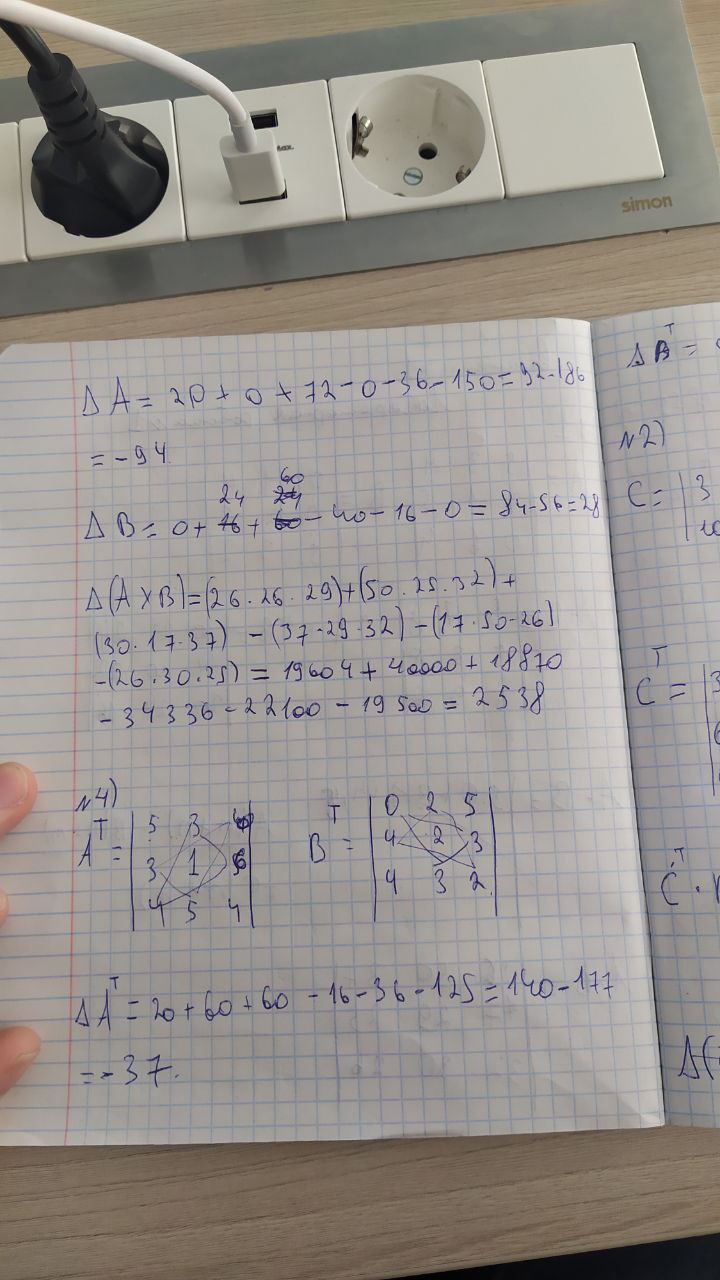 max.
simon
Δ A = 20 + 0 + 72 - 0 - 36 - 150 = 92 - 186
= - 94
24 60
Δ B = 0 + 16 + 60 - 40 - 16 - 0 = 84 - 56 = 28
Δ(A × B) = (26 · 26 · 29) + (50 · 25 · 32) +
(30 · 17 · 37) - (37 · 29 · 32) - (17 · 50 · 26)
- (26 · 30 · 25) = 19604 + 40000 + 18870
- 34336 - 22100 - 19500 = 2538
№4)
A^T = | 5 3 |
| 3 1 6 |
| 4 5 4 |
B^T = | 0 2 5 |
| 4 2 3 |
| 4 3 2 |
Δ A^T = 20 + 60 + 60 - 16 - 36 - 125 = 140 - 177
= - 37.
Δ B^T =
№2)
C = | 3
10
C^T = | 3
C^T ·
Δ(